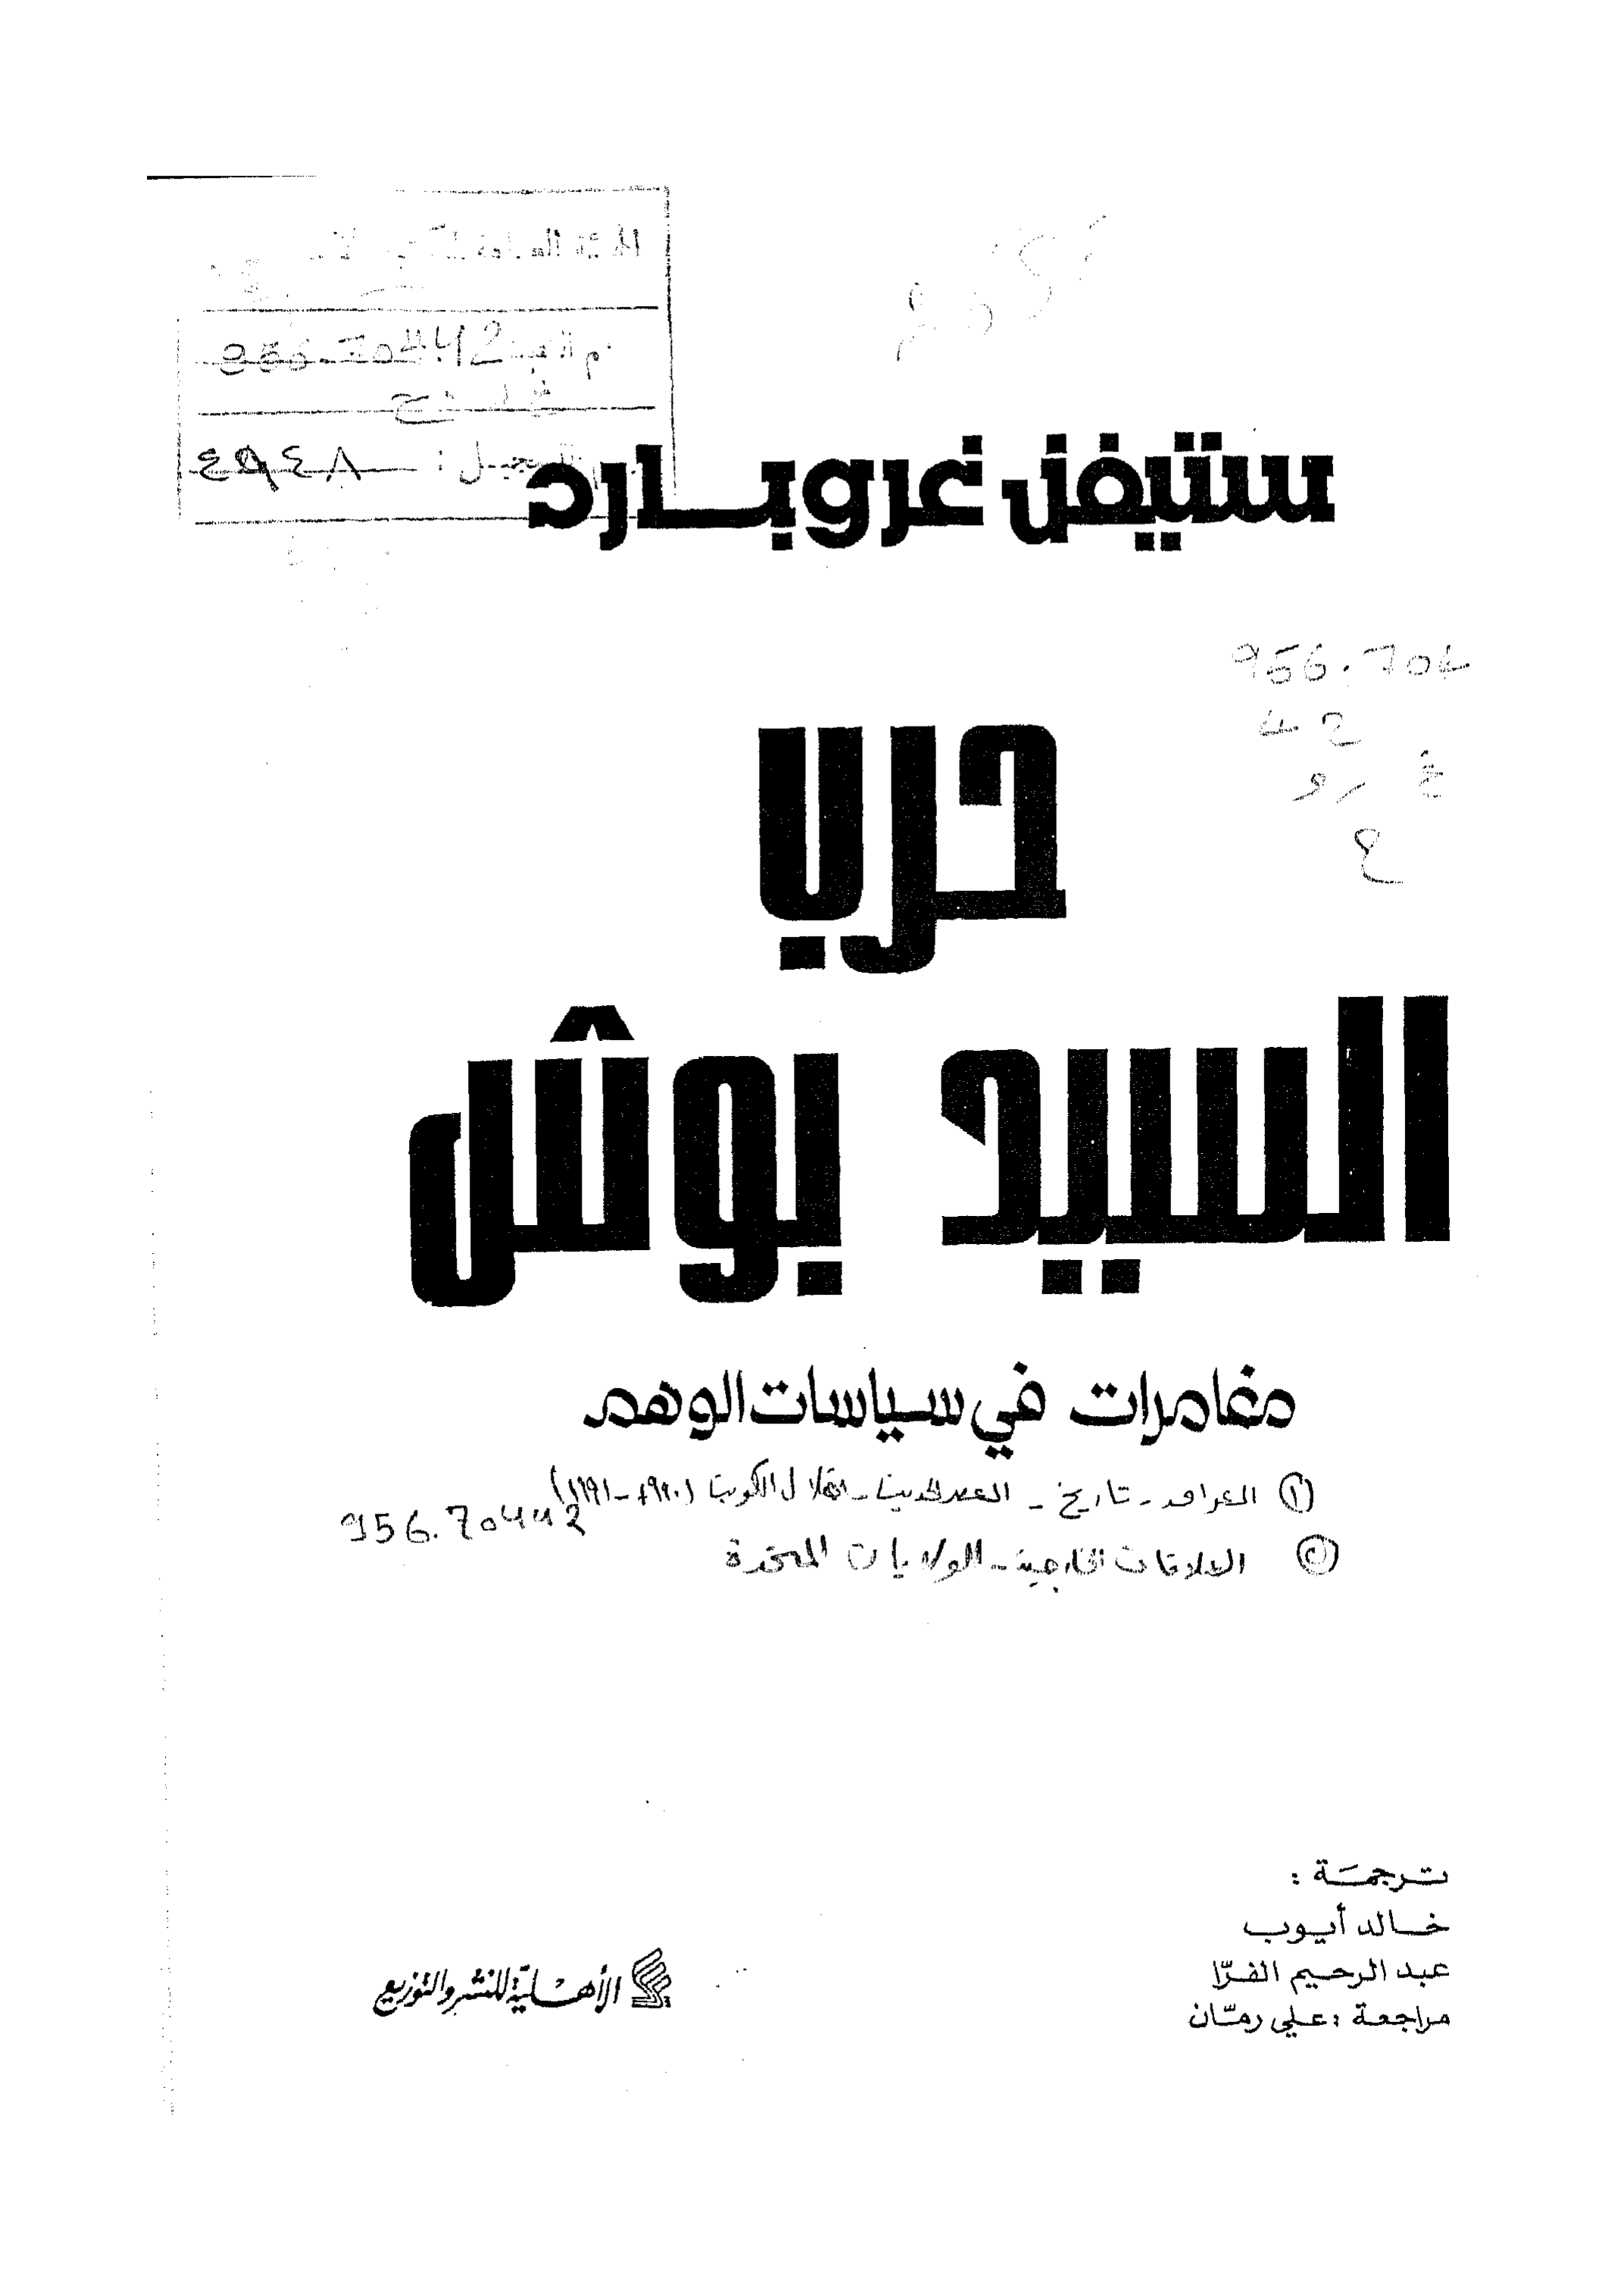 956.70442
ستيفن غروبارد
٤٩٤٨
956.704
42
غ رو
ح
حرب
السيد بوش
مغامرات في سياسات الوهم
① العراق - تاريخ - العصر الحديث - احتلال الكويت (١٩٩٠-١٩٩١)
956.70442
② العلاقات الخارجية - الولايات المتحدة
ترجمة :
خالد أيوب
عبد الرحيم الفرّا
مراجعة : علي رمّان
الأهليّة للنشر والتوزيع